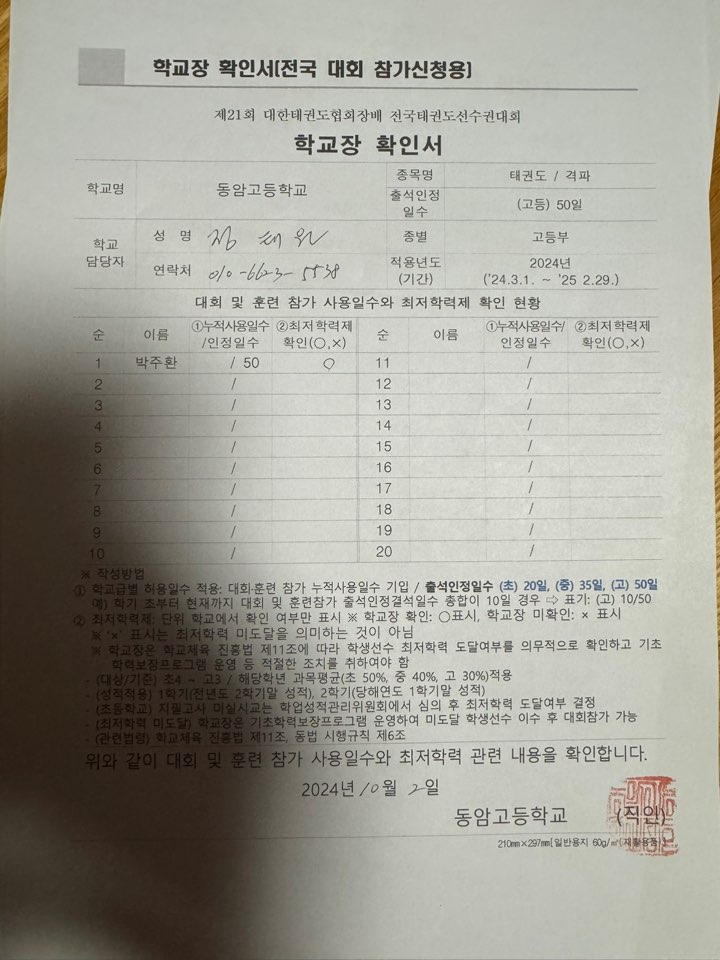 학교장 확인서(전국 대회 참가신청용)
제21회 대한태권도협회장배 전국태권도선수권대회
학교장 확인서
학교명 동암고등학교 종목명 태권도 / 격파
출석인정 일수 (고등) 50일
학교 담당자 성 명 종별 고등부
연락처 010-6623-5538 적용년도 (기간) 2024년 ('24.3.1. ~ '25 2.29.)
대회 및 훈련 참가 사용일수와 최저학력제 확인 현황
순 이름 ①누적사용일수/인정일수 ②최저학력제 확인(○,×) 순 이름 ①누적사용일수/인정일수 ②최저학력제 확인(○,×)
1 박주환 / 50 ○ 11 /
2 / 12 /
3 / 13 /
4 / 14 /
5 / 15 /
6 / 16 /
7 / 17 /
8 / 18 /
9 / 19 /
10 / 20 /
※ 작성방법
① 학교급별 허용일수 적용: 대회·훈련 참가 누적사용일수 기입 / 출석인정일수 (초) 20일, (중) 35일, (고) 50일
예) 학기 초부터 현재까지 대회 및 훈련참가 출석인정결석일수 총합이 10일 경우 ⇨ 표기: (고) 10/50
② 최저학력제: 단위 학교에서 확인 여부만 표시 ※ 학교장 확인: ○표시, 학교장 미확인: × 표시
※ '×' 표시는 최저학력 미도달을 의미하는 것이 아님
※ 학교장은 학교체육 진흥법 제11조에 따라 학생선수 최저학력 도달여부를 의무적으로 확인하고 기초
학력보장프로그램 운영 등 적절한 조치를 취하여야 함
- (대상/기준) 초4 ~ 고3 / 해당학년 과목평균(초 50%, 중 40%, 고 30%)적용
- (성적적용) 1학기(전년도 2학기말 성적), 2학기(당해연도 1학기말 성적)
- (초등학교) 지필고사 미실시교는 학업성적관리위원회에서 심의 후 최저학력 도달여부 결정
- (최저학력 미도달) 학교장은 기초학력보장프로그램 운영하여 미도달 학생선수 이수 후 대회참가 가능
- (관련법령) 학교체육 진흥법 제11조, 동법 시행규칙 제6조
위와 같이 대회 및 훈련 참가 사용일수와 최저학력 관련 내용을 확인합니다.
2024년 10월 2일
동암고등학교 (직인)
210㎜×297㎜[일반용지 60g/㎡(재활용품)]